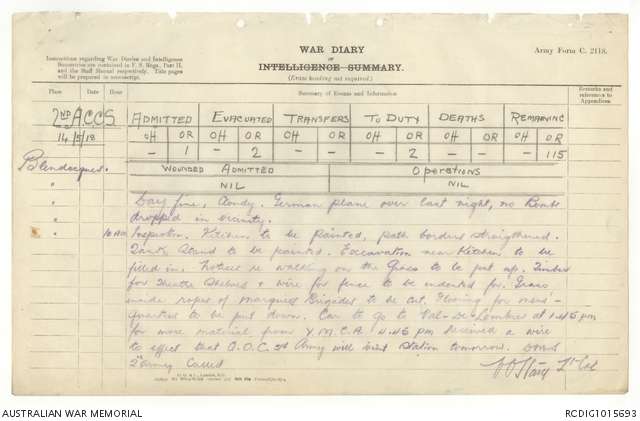 WAR DIARY
or
INTELLIGENCE SUMMARY.
(Erase heading not required.)
Army Form C. 2118.
Instructions regarding War Diaries and Intelligence
Summaries are contained in F. S. Regs., Part II.
and the Staff Manual respectively. Title pages
will be prepared in manuscript.
Place Date Hour Summary of Events and Information Remarks and references to Appendices
2ND A.C.C.S. ADMITTED EVACUATED TRANSFERS TO DUTY DEATHS REMAINING
14/5/18 OFF OR OFF OR OFF OR OFF OR OFF OR OFF OR
Blendecques. - 1 - 2 - 2 - 115
WOUNDED ADMITTED Operations
NIL NIL
" Day fine, windy. German plane over last night, no Bombs
" dropped in vicinity.
" 10 AM Inspection. Kitchen to be painted, path borders straightened.
Tank Stand to be painted. Excavation near Kitchen to be
filled in. Notices re walking on the Grass to be put up. Timber
for Theatre Shelves & wire for fence to be indented for. Grass
inside ropes of marquee Brigades to be cut. Flooring for mens'
quarters to be put down. Car to go to Val-De-Lumbres at 1.45 pm
for more material from Y.M.C.A. 4.45 pm received a wire
to effect that G.O.C. 2nd Army will visit Station tomorrow. DDMS
2nd Army Called
Lt Col